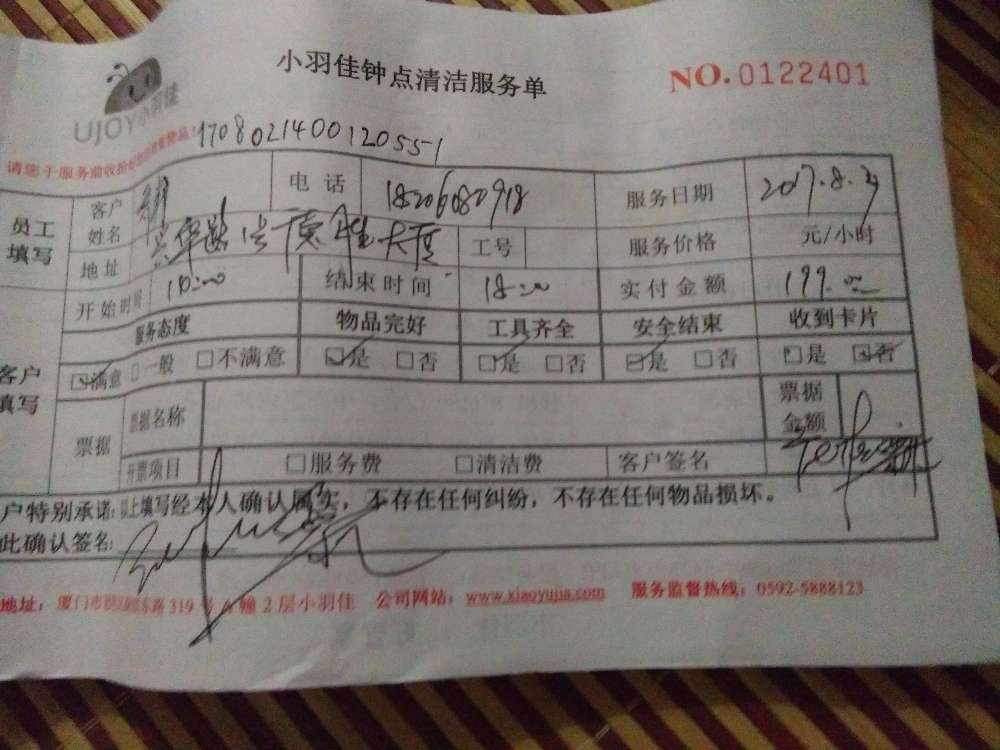 小羽佳钟点清洁服务单
NO.0122401
UJOY小羽佳
1708021400120551
请您于服务前收拾好您的贵重物品！
员工填写
客户姓名
电话
18206080918
服务日期
2017.8.
地址
工号
服务价格
元/小时
开始时间
结束时间
18:00
实付金额
199.00
客户填写
服务态度
物品完好
工具齐全
安全结束
收到卡片
☑满意 □一般 □不满意
☑是 □否
☑是 □否
☑是 □否
□是 ☑否
票据
票据名称
票据金额
开票项目
□服务费
□清洁费
客户签名
户特别承诺：以上填写经本人确认属实，不存在任何纠纷，不存在任何物品损坏。
此确认签名：
地址：厦门市 东路319号A幢2层小羽佳 公司网站：www.xiaoyujia.com 服务监督热线：0592-5888123